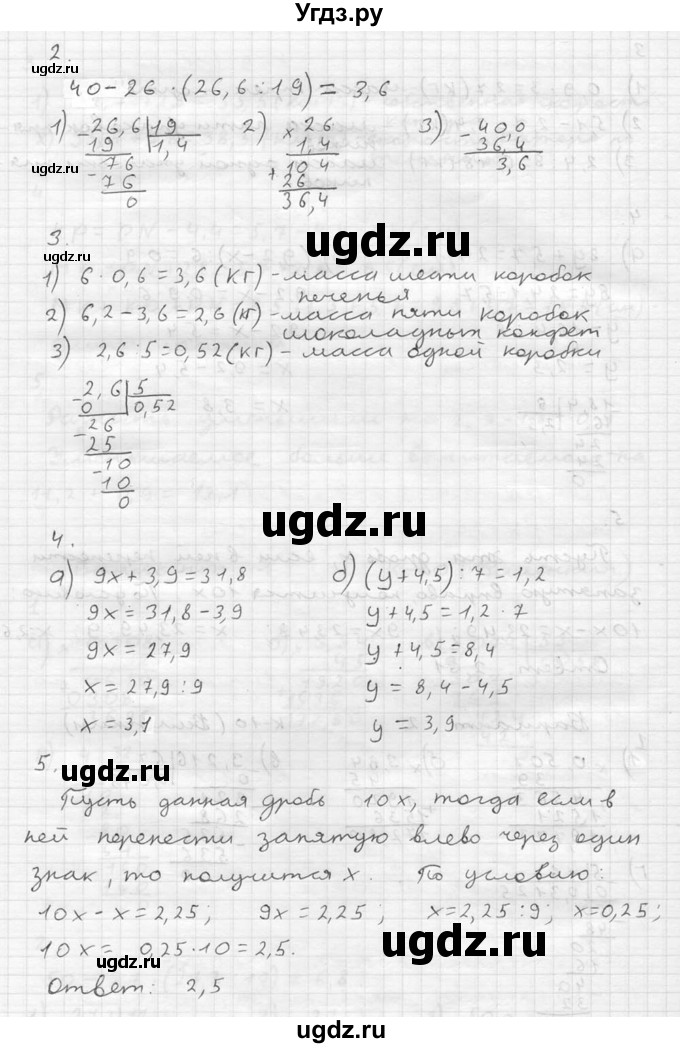 Угдз.ру
2.
ugdz.ru
40 - 26 · (26,6 : 19) = 3,6
1) 26,6 | 19   2) 26   3) 40,0
- 19   1,4   × 1,4   - 36,4
76   10,4   3,6
- 76   + 26
0   36,4
ugdz.ru
ugdz.ru
3.
1) 6 · 0,6 = 3,6 (кг) - масса шести коробок
печенья
2) 6,2 - 3,6 = 2,6 (кг) - масса пяти коробок
шоколадных конфет
3) 2,6 : 5 = 0,52 (кг) - масса одной коробки
- 2,6 | 5
0   0,52
26
- 25
- 10
10
0
ugdz.ru
4.
а) 9x + 3,9 = 31,8   б) (y + 4,5) : 7 = 1,2
9x = 31,8 - 3,9   y + 4,5 = 1,2 · 7
9x = 27,9   y + 4,5 = 8,4
x = 27,9 : 9   y = 8,4 - 4,5
x = 3,1   y = 3,9
5.
ugdz.ru
Пусть данная дробь 10x, тогда если в
ней перенести запятую влево через один
знак, то получится x. По условию:
10x - x = 2,25; 9x = 2,25; x = 2,25 : 9; x = 0,25;
10x = 0,25 · 10 = 2,5.
ugdz.ru
ugdz.ru
Ответ: 2,5
ugdz.ru